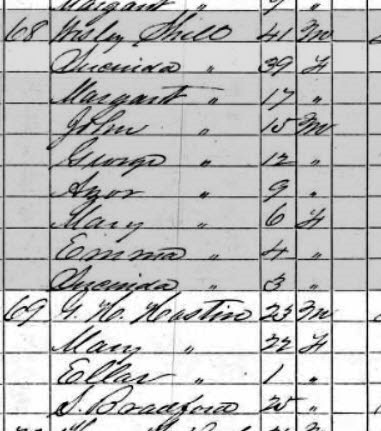 Margaret " 9 "
68 Wisley Shill 41 M
Lucinda " 39 F
Margaret " 17 "
John " 15 M
George " 12 "
Azor " 9 "
Mary " 6 F
Emma " 4 "
Lucinda " 3 "
69 G. H. Hastin 23 M
Mary " 22 F
Ellar " 1 "
S. Bradford 25 "